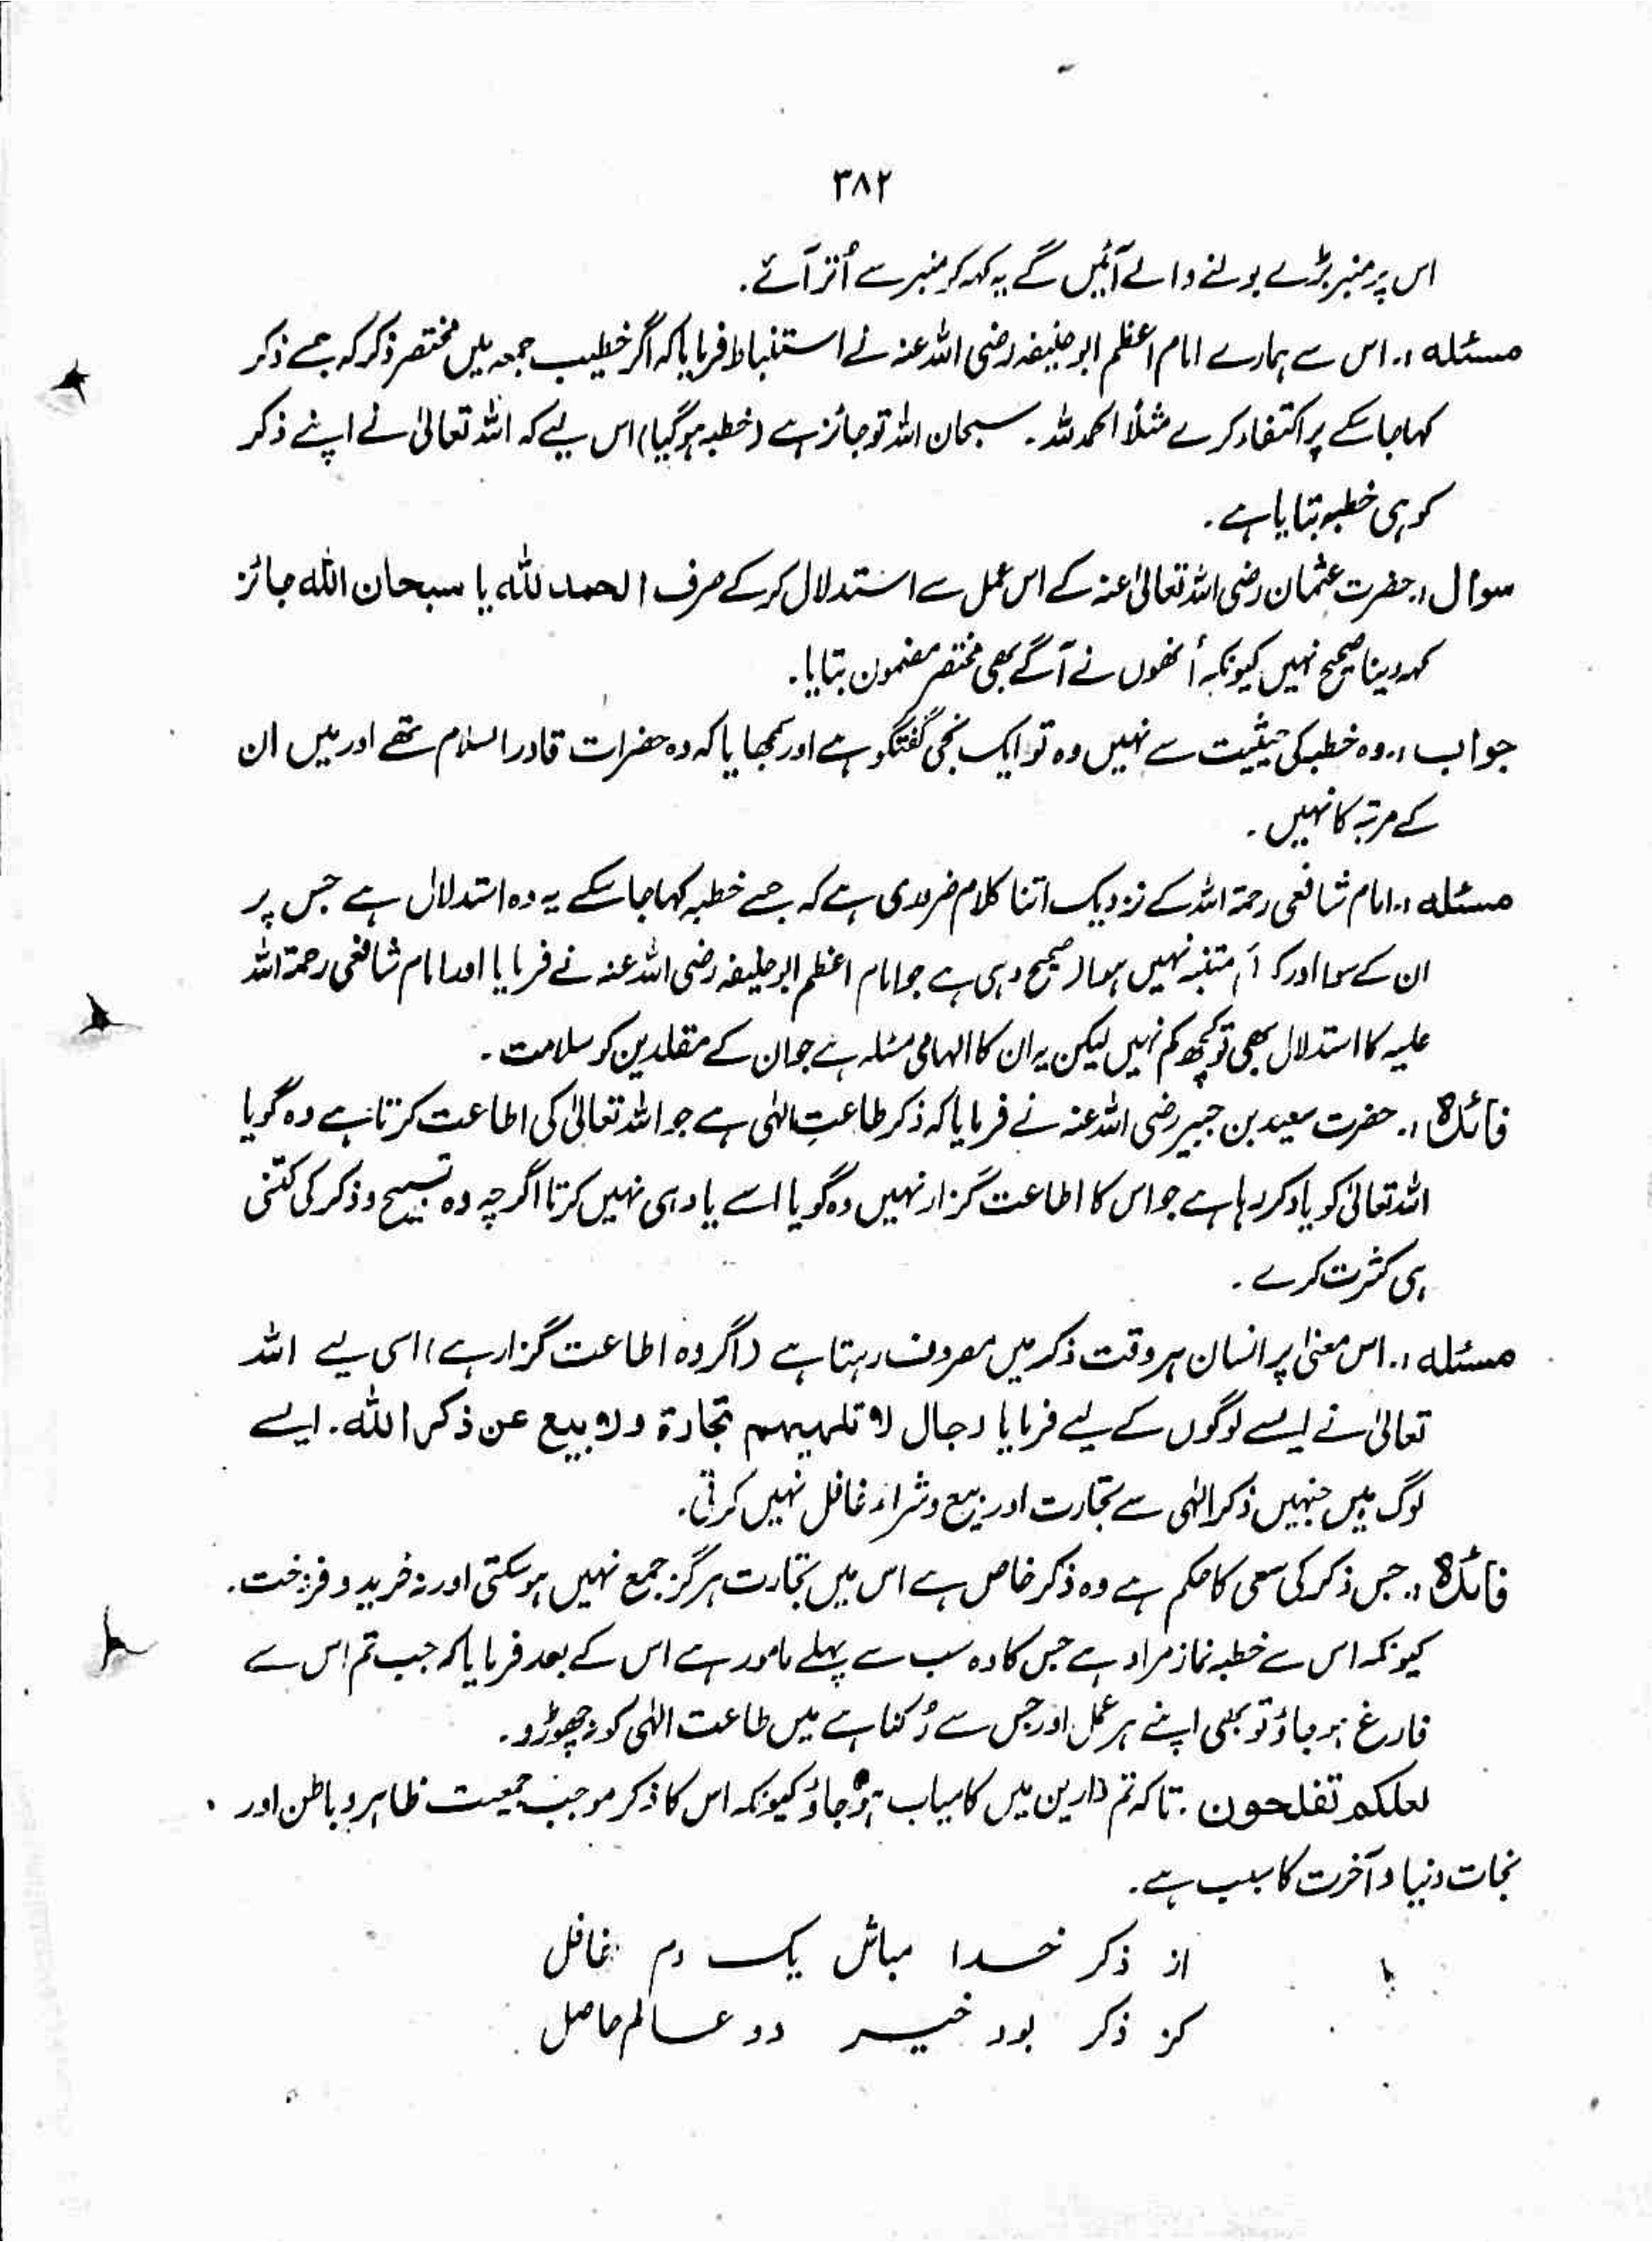 ۳۸۲
اس پر منبر بڑے بولنے والے آئیں گے یہ کہہ کر منبر سے اُتر آئے۔
مسئلہ :۔ اس سے ہمارے امام اعظم ابو حنیفہ رضی اللہ عنہ نے استنباط فرمایا کہ اگر خطیب جمعہ میں مختصر ذکر کہ جسے ذکر
کہا جا سکے پر اکتفاء کرے مثلاً الحمد للہ ۔ سبحان اللہ تو جائز ہے (خطبہ ہو گیا) اس لیے کہ اللہ تعالیٰ نے اپنے ذکر
کو ہی خطبہ بتایا ہے ۔
سوال :۔ حضرت عثمان رضی اللہ تعالیٰ عنہ کے اس عمل سے استدلال کر کے صرف الحمد للہ یا سبحان اللہ جائز
کہہ دینا صحیح نہیں کیونکہ اُنھوں نے آگے بھی مختصر مضمون بتایا۔
جواب :۔ وہ خطبہ کی حیثیت سے نہیں وہ تو ایک نجی گفتگو ہے اور سمجھایا کہ وہ حضرات قادر السلام تھے اور میں ان
کے مرتبہ کا نہیں ۔
مسئلہ :۔ امام شافعی رحمۃ اللہ کے نزدیک اتنا کلام ضروری ہے کہ جسے خطبہ کہا جا سکے یہ وہ استدلال ہے جس پر
ان کے سوا اور کوئی متنبہ نہیں ہوا۔ صحیح وہی ہے جو امام اعظم ابو حنیفہ رضی اللہ عنہ نے فرمایا اور امام شافعی رحمۃ اللہ
علیہ کا استدلال بھی تو کچھ کم نہیں لیکن یہ ان کا الہامی مسئلہ ہے جو ان کے مقلدین کو سلامت ۔
فائدہ :۔ حضرت سعید بن جبیر رضی اللہ عنہ نے فرمایا کہ ذکر طاعتِ الٰہی ہے جو اللہ تعالیٰ کی اطاعت کرتا ہے وہ گویا
اللہ تعالیٰ کو یاد کر رہا ہے جو اس کا اطاعت گزار نہیں وہ گویا اسے یاد ہی نہیں کرتا اگرچہ وہ تسبیح و ذکر کی کتنی
ہی کثرت کرے ۔
مسئلہ :۔ اس معنیٰ پر انسان ہر وقت ذکر میں مصروف رہتا ہے (اگر وہ اطاعت گزار ہے) اسی لیے اللہ
تعالیٰ نے ایسے لوگوں کے لیے فرمایا رجال لا تلہیہم تجارۃ ولا بیع عن ذکر اللہ۔ ایسے
لوگ ہیں جنہیں ذکر الٰہی سے تجارت اور بیع و شراء غافل نہیں کرتی۔
فائدہ :۔ جس ذکر کی سعی کا حکم ہے وہ ذکر خاص ہے اس میں تجارت ہرگز جمع نہیں ہو سکتی اور نہ خرید و فروخت۔
کیونکہ اس سے خطبہ نماز مراد ہے جس کا وہ سب سے پہلے مامور ہے اس کے بعد فرمایا کہ جب تم اس سے
فارغ ہو جاؤ تو بھی اپنے ہر عمل اور جس سے رُکنا ہے میں طاعت الٰہی کو نہ چھوڑو۔
لعلکم تفلحون ۔ تاکہ تم دارین میں کامیاب ہو جاؤ کیونکہ اس کا ذکر موجب جمیعت ظاہر و باطن اور
نجات دنیا و آخرت کا سبب ہے۔
از ذکر خدا مباش یک دم غافل
کز ذکر بود خیر دو عالم حاصل